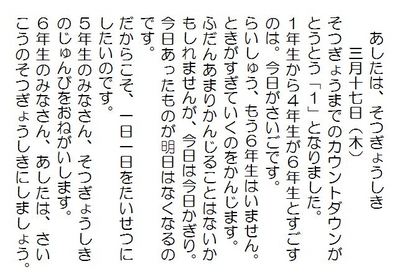 あしたは、そつぎょうしき
三月十七日（木）
そつぎょうまでのカウントダウンが
とうとう「１」となりました。
１年生から４年生が６年生とすごす
のは。今日がさいごです。
らいしゅう、もう６年生はいません。
ときがすぎていくのをかんじます。
ふだんあまりかんじることはないか
もしれませんが、今日は今日かぎり。
今日あったものが明日はなくなるの
です。
だからこそ、一日一日をたいせつに
したいのです。
５年生のみなさん、そつぎょうしき
のじゅんびをおねがいします。
６年生のみなさん、あしたは、さい
こうのそつぎょうしきにしましょう。